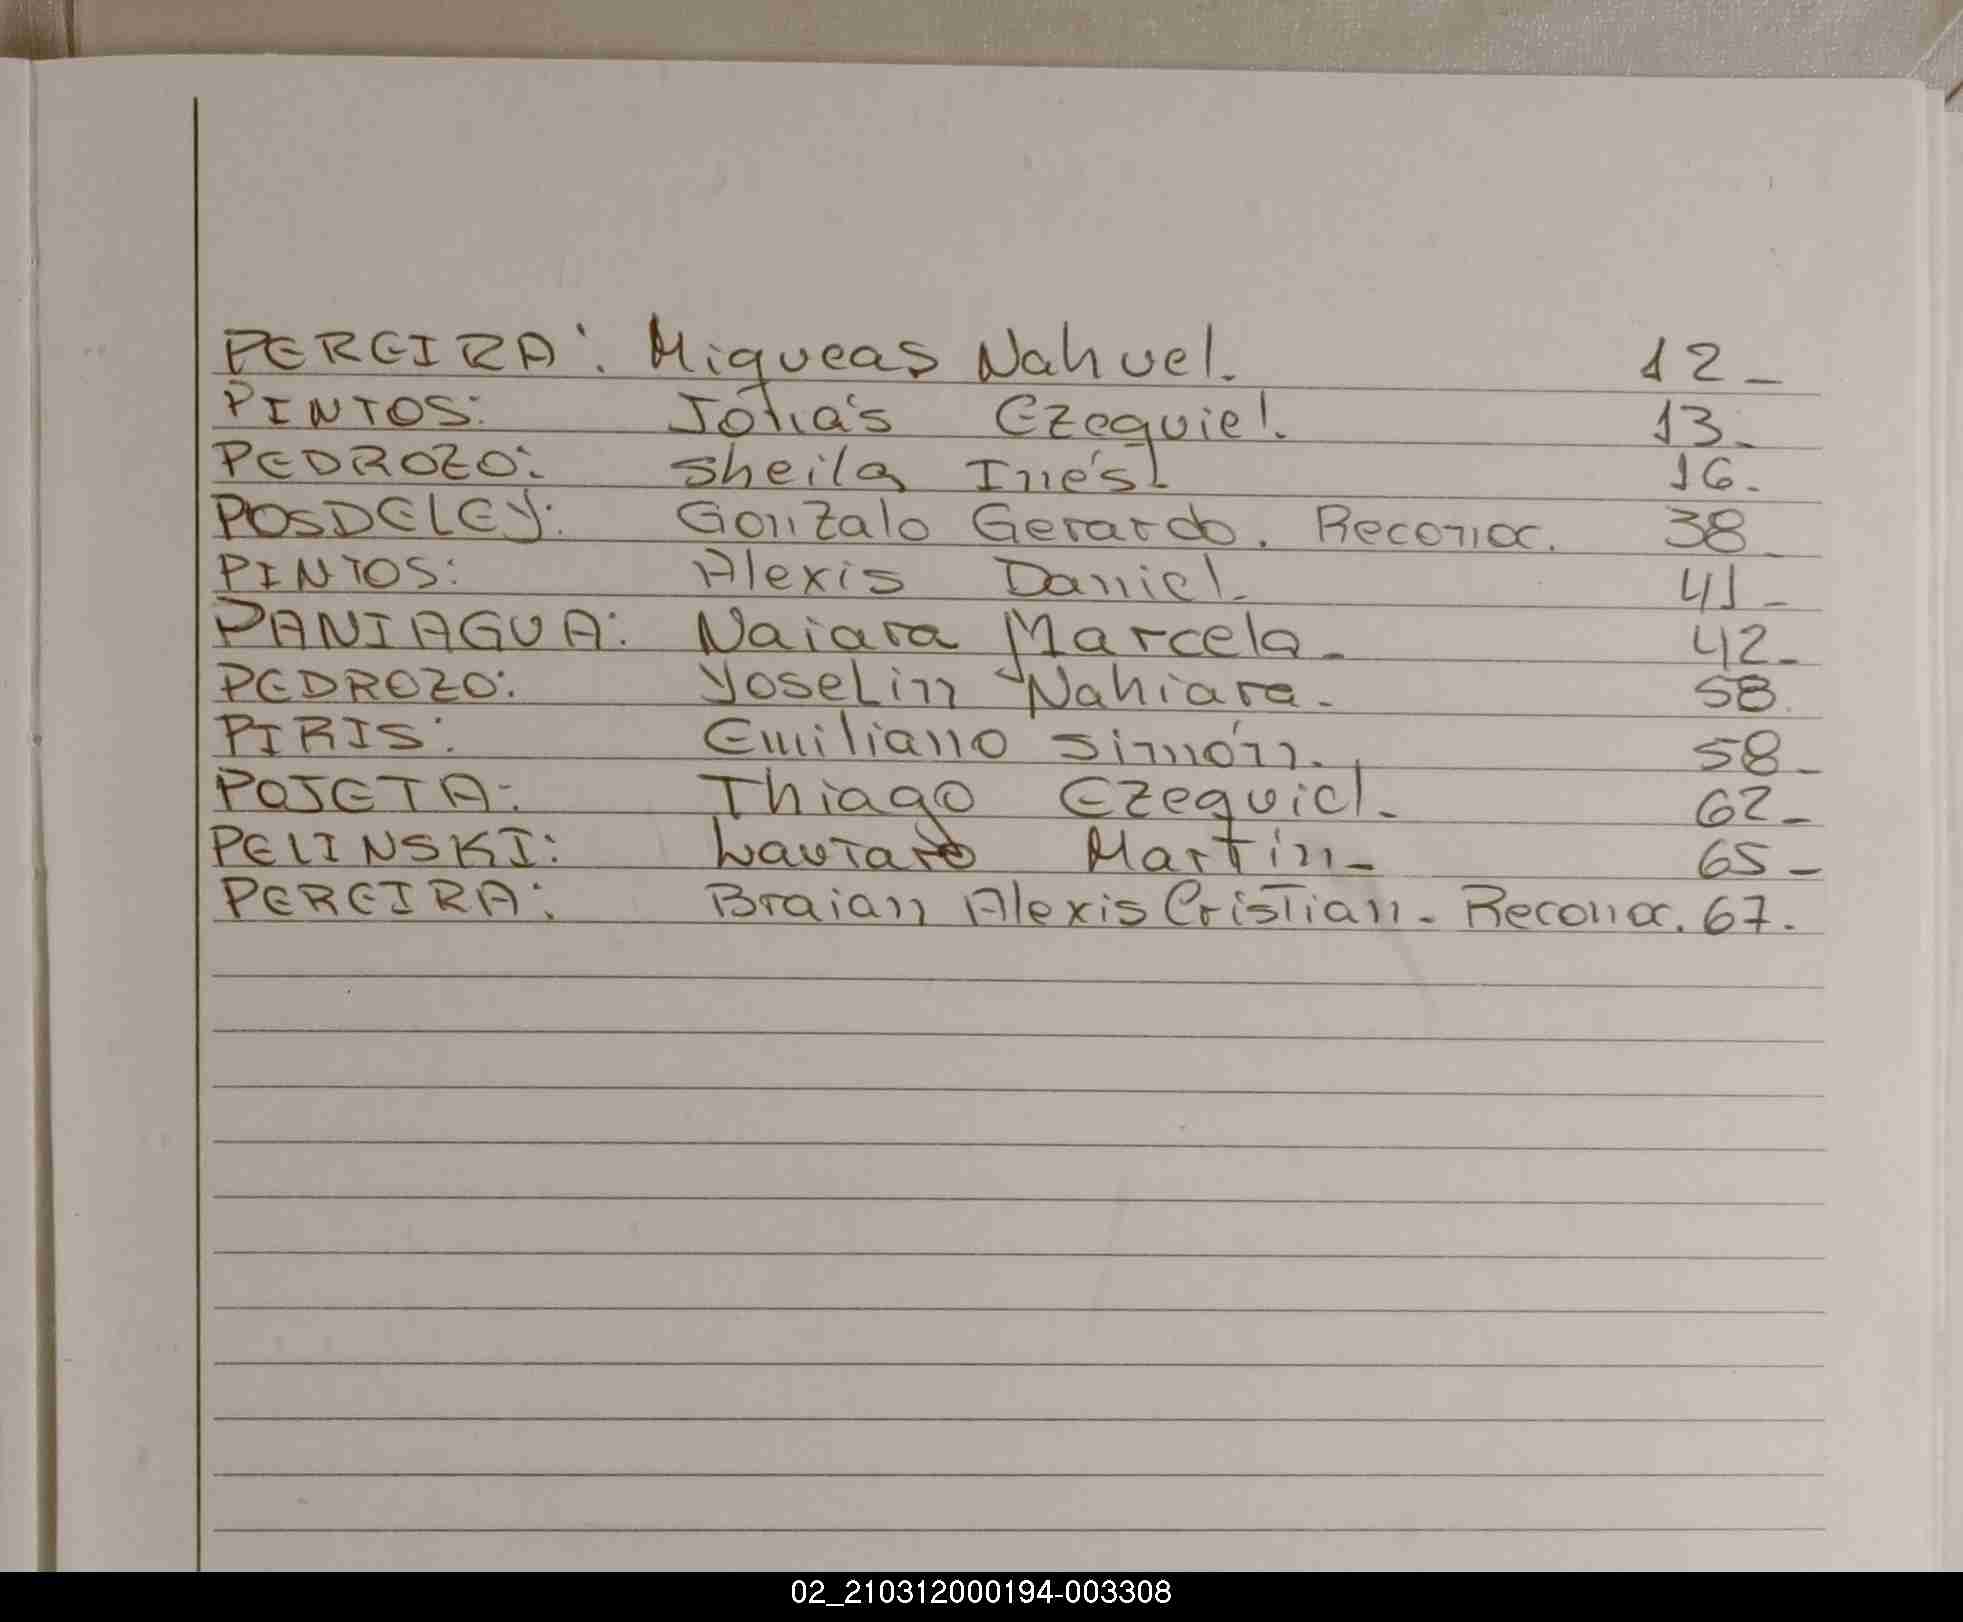 PEREIRA: Miqueas Nahuel. 12-
PINTOS: Jonás Ezequiel. 13-
PEDROZO: Sheila Inés. 16.
POSDELEY: Gonzalo Gerardo. Reconoc. 38-
PINTOS: Alexis Daniel- 41-
PANIAGUA: Naiara Marcela- 42-
PEDROZO: Yoselin Nahiara- 58.
PIRIS: Emiliano Simón. 58-
POJETA: Thiago Ezequiel- 62-
PELINSKI: Lautaro Martín- 65-
PEREIRA: Braian Alexis Cristian- Reconoc. 67-
02_210312000194-003308